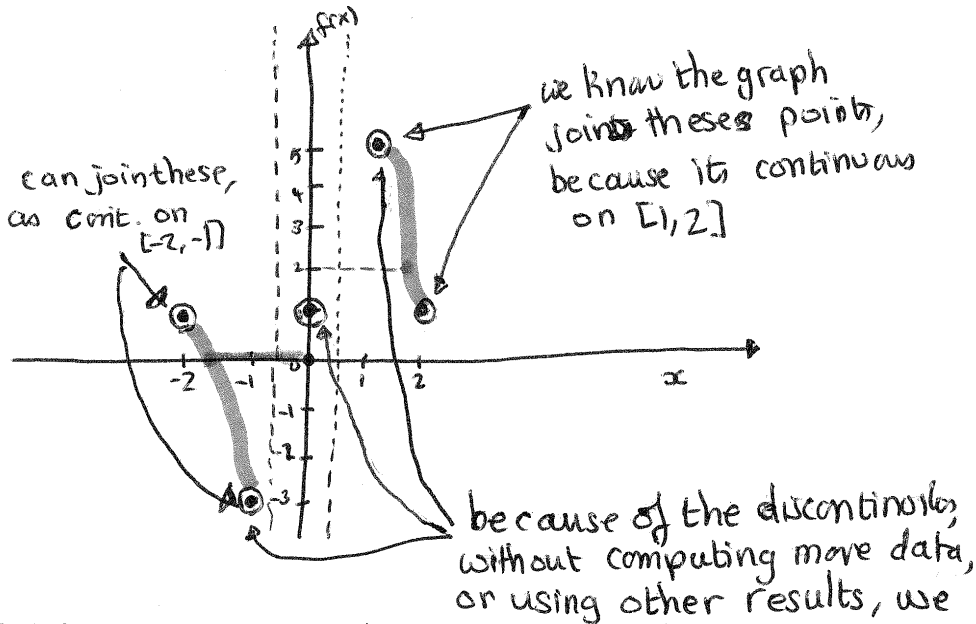 f(x)
we know the graph
joins theses points,
because its continuous
on [1, 2]
can join these,
as cont. on
[-2, -1]
5
4
3
2
-2 -1 0 1 2
x
-1
-2
-3
because of the discontinuity,
without computing more data,
or using other results, we